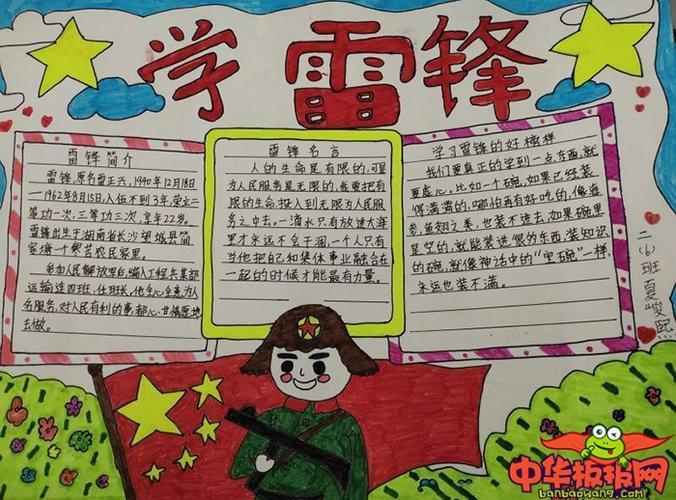 学雷锋
雷锋简介
雷锋,原名雷正兴,1940年12月18日
—1962年8月15日,入伍不到3年,荣立二
等功一次,三等功三次,享年22岁。
雷锋出生于湖南省长沙望城县简
家塘一个贫苦农民家里。
参加人民解放军后,编入工程兵某部
运输连四班,任班长,他全心全意为人
民服务,对人民有利的事都心甘情愿地
去做。
雷锋名言
人的生命是有限的,可是
为人民服务是无限的,我要把有
限的生命投入到无限为人民服
务之中去。一滴水只有放进大海
里才永远不会干涸,一个人只有
当他把自己和集体事业融合在
一起的时候才能最有力量。
学习雷锋的好榜样
我们要真正的学到一点东西,就
要虚心。比如一个碗,如果已经装
得满满的,哪怕再有好吃的,像海
参,鱼翅之类,也装不进去,如果碗里
是空的,就能装进很多东西,装知识
的碗,就像神话中的“宝碗”一样,
永远也装不满。
二(6)班夏峻熙
中华板报网
banbaowang.com